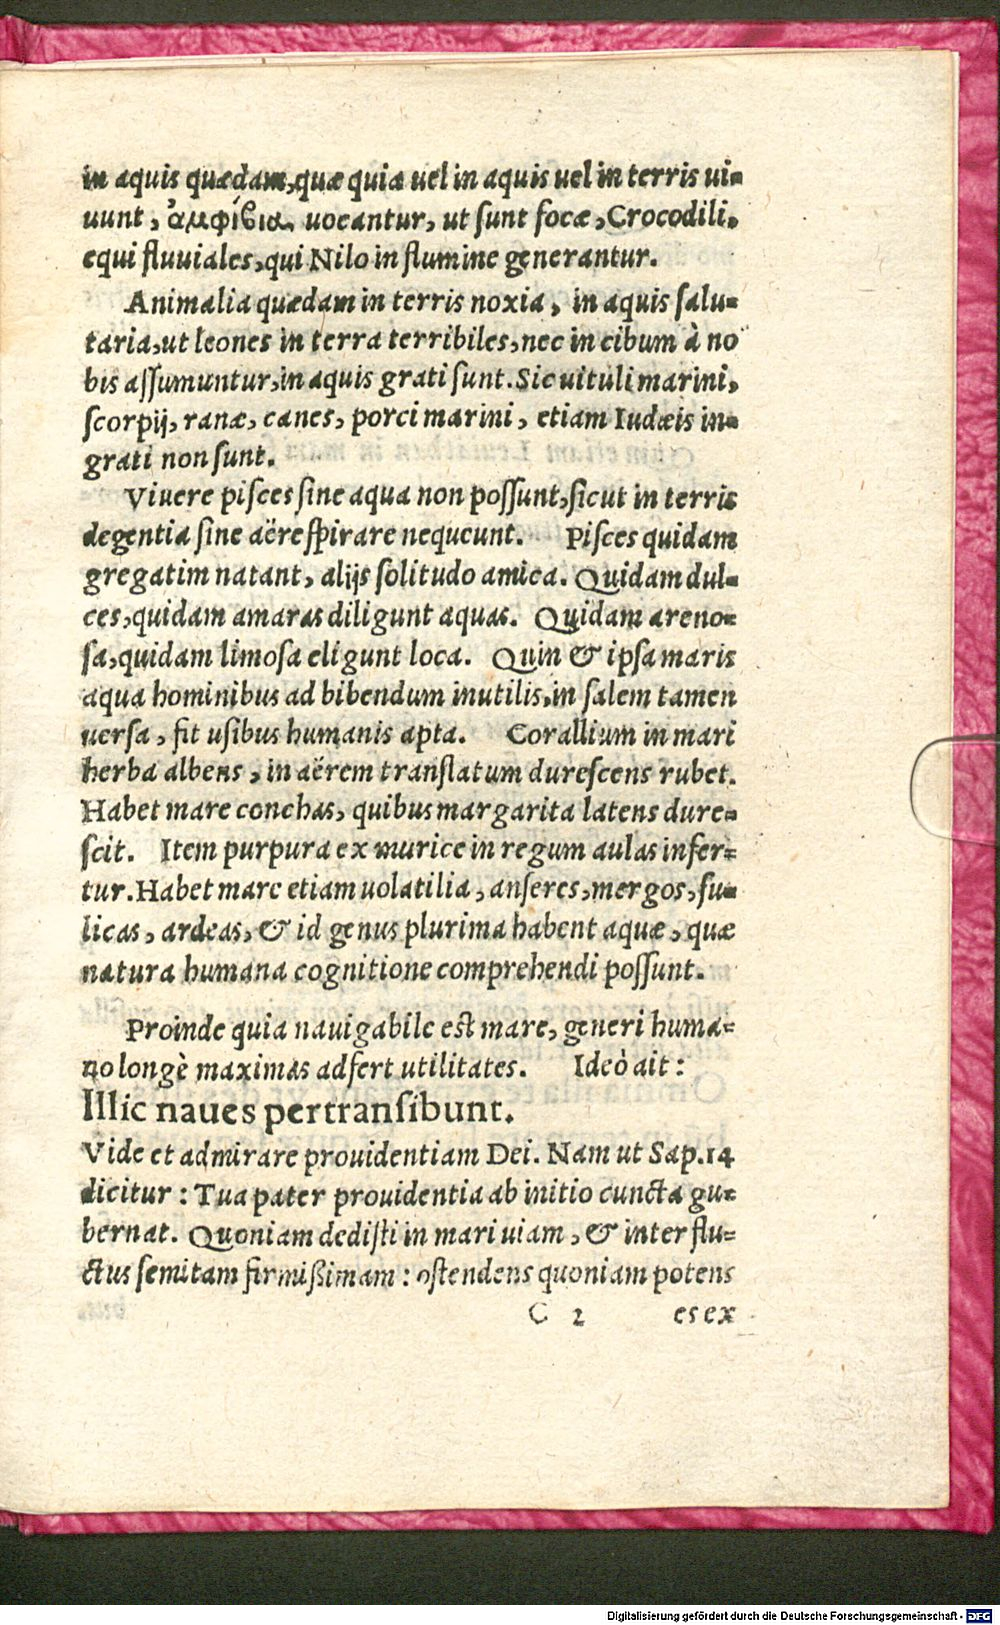 in aquis quædam, quæ quia uel in aquis uel in terris ui-
uunt, ἀμφίβια, uocantur, ut ſunt focæ, Crocodili,
equi fluuiales, qui Nilo in flumine generantur.
Animalia quædam in terris noxia, in aquis ſalu-
taria, ut leones in terra terribiles, nec in cibum à no
bis aſſumuntur, in aquis grati ſunt. Sic uituli marini,
ſcorpij, ranæ, canes, porci marini, etiam Iudæis in-
grati non ſunt.
Viuere piſces ſine aqua non poſſunt, ſicut in terris
degentia ſine aëre ſpirare nequeunt. Piſces quidam
gregatim natant, alijs ſolitudo amica. Quidam dul-
ces, quidam amaras diligunt aquas. Quidam areno-
ſa, quidam limoſa eligunt loca. Quin & ipſa maris
aqua hominibus ad bibendum inutilis, in ſalem tamen
uerſa, fit uſibus humanis apta. Corallium in mari
herba albens, in aërem tranſlatum dureſcens rubet.
Habet mare conchas, quibus margarita latens dure-
ſcit. Item purpura ex murice in regum aulas infer-
tur. Habet mare etiam uolatilia, anſeres, mergos, fu-
licas, ardeas, & id genus plurima habent aquæ, quæ
natura humana cognitione comprehendi poſſunt.
Proinde quia nauigabile eſt mare, generi huma-
no longè maximas adfert utilitates. Ideò ait:
Illic naues pertranſibunt.
Vide et admirare prouidentiam Dei. Nam ut Sap. 14
dicitur: Tua pater prouidentia ab initio cuncta gu-
bernat. Quoniam dediſti in mari uiam, & inter flu-
ctus ſemitam firmißimam: oſtendens quoniam potens
C 2 es ex
Digitalisierung gefördert durch die Deutsche Forschungsgemeinschaft - DFG